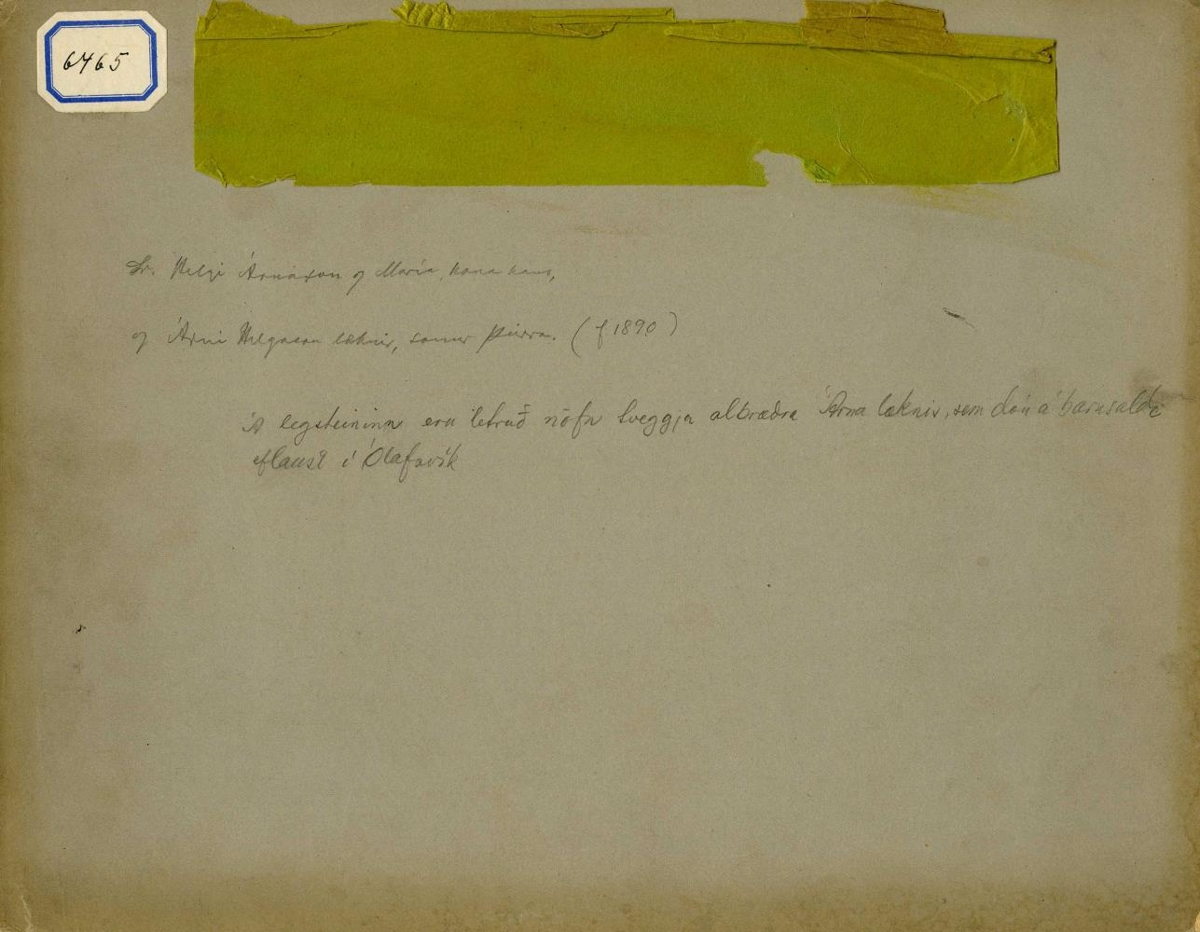 6465
Sr. Helgi Árnason og María, kona hans,
og Árni Helgason læknir, sonur þeirra. (f 1890)
Á legsteininn eru letruð nöfn tveggja albræðra Árna læknis, sem dóu á barnsaldri
eflaust í Ólafsvík